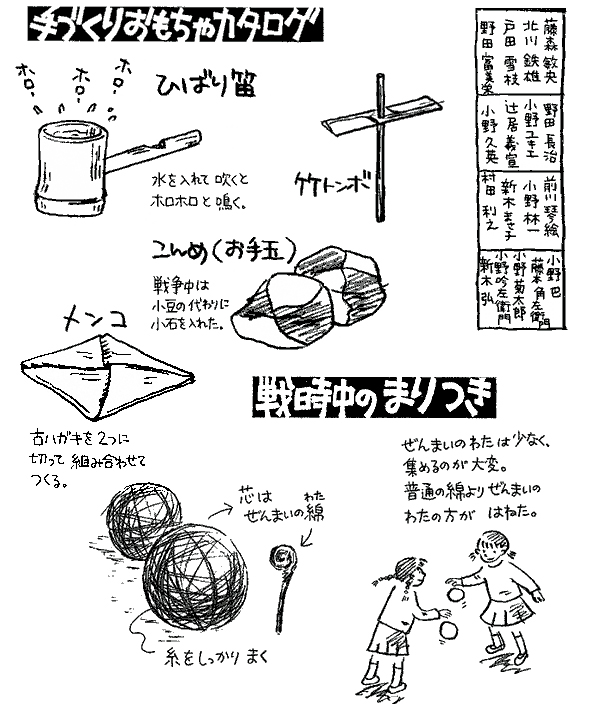 手づくりおもちゃカタログ
ホロ、
ホロ、
ホロ、
ひばり笛
水を入れて吹くと
ホロホロと鳴く。
竹トンボ
こんめ(お手玉)
戦争中は
小豆の代わりに
小石を入れた。
メンコ
古ハガキを2つに
切って組み合わせて
つくる。
藤森 敏央
北川 鉄雄
戸田 雪枝
野田 富美栄
野田 長治
小野ユキエ
辻居 義宣
小野 久英
前川 琴絵
小野 林一
新木まさ子
村田 利之
小野 巴
藤本角左衛門
小野菊太郎
小野吟左衛門
新木 弘
戦時中のまりつき
ぜんまいのわたは少なく、
集めるのが大変。
普通の綿よりぜんまいの
わたの方が はねた。
芯は わた
ぜんまいの綿
糸をしっかり まく